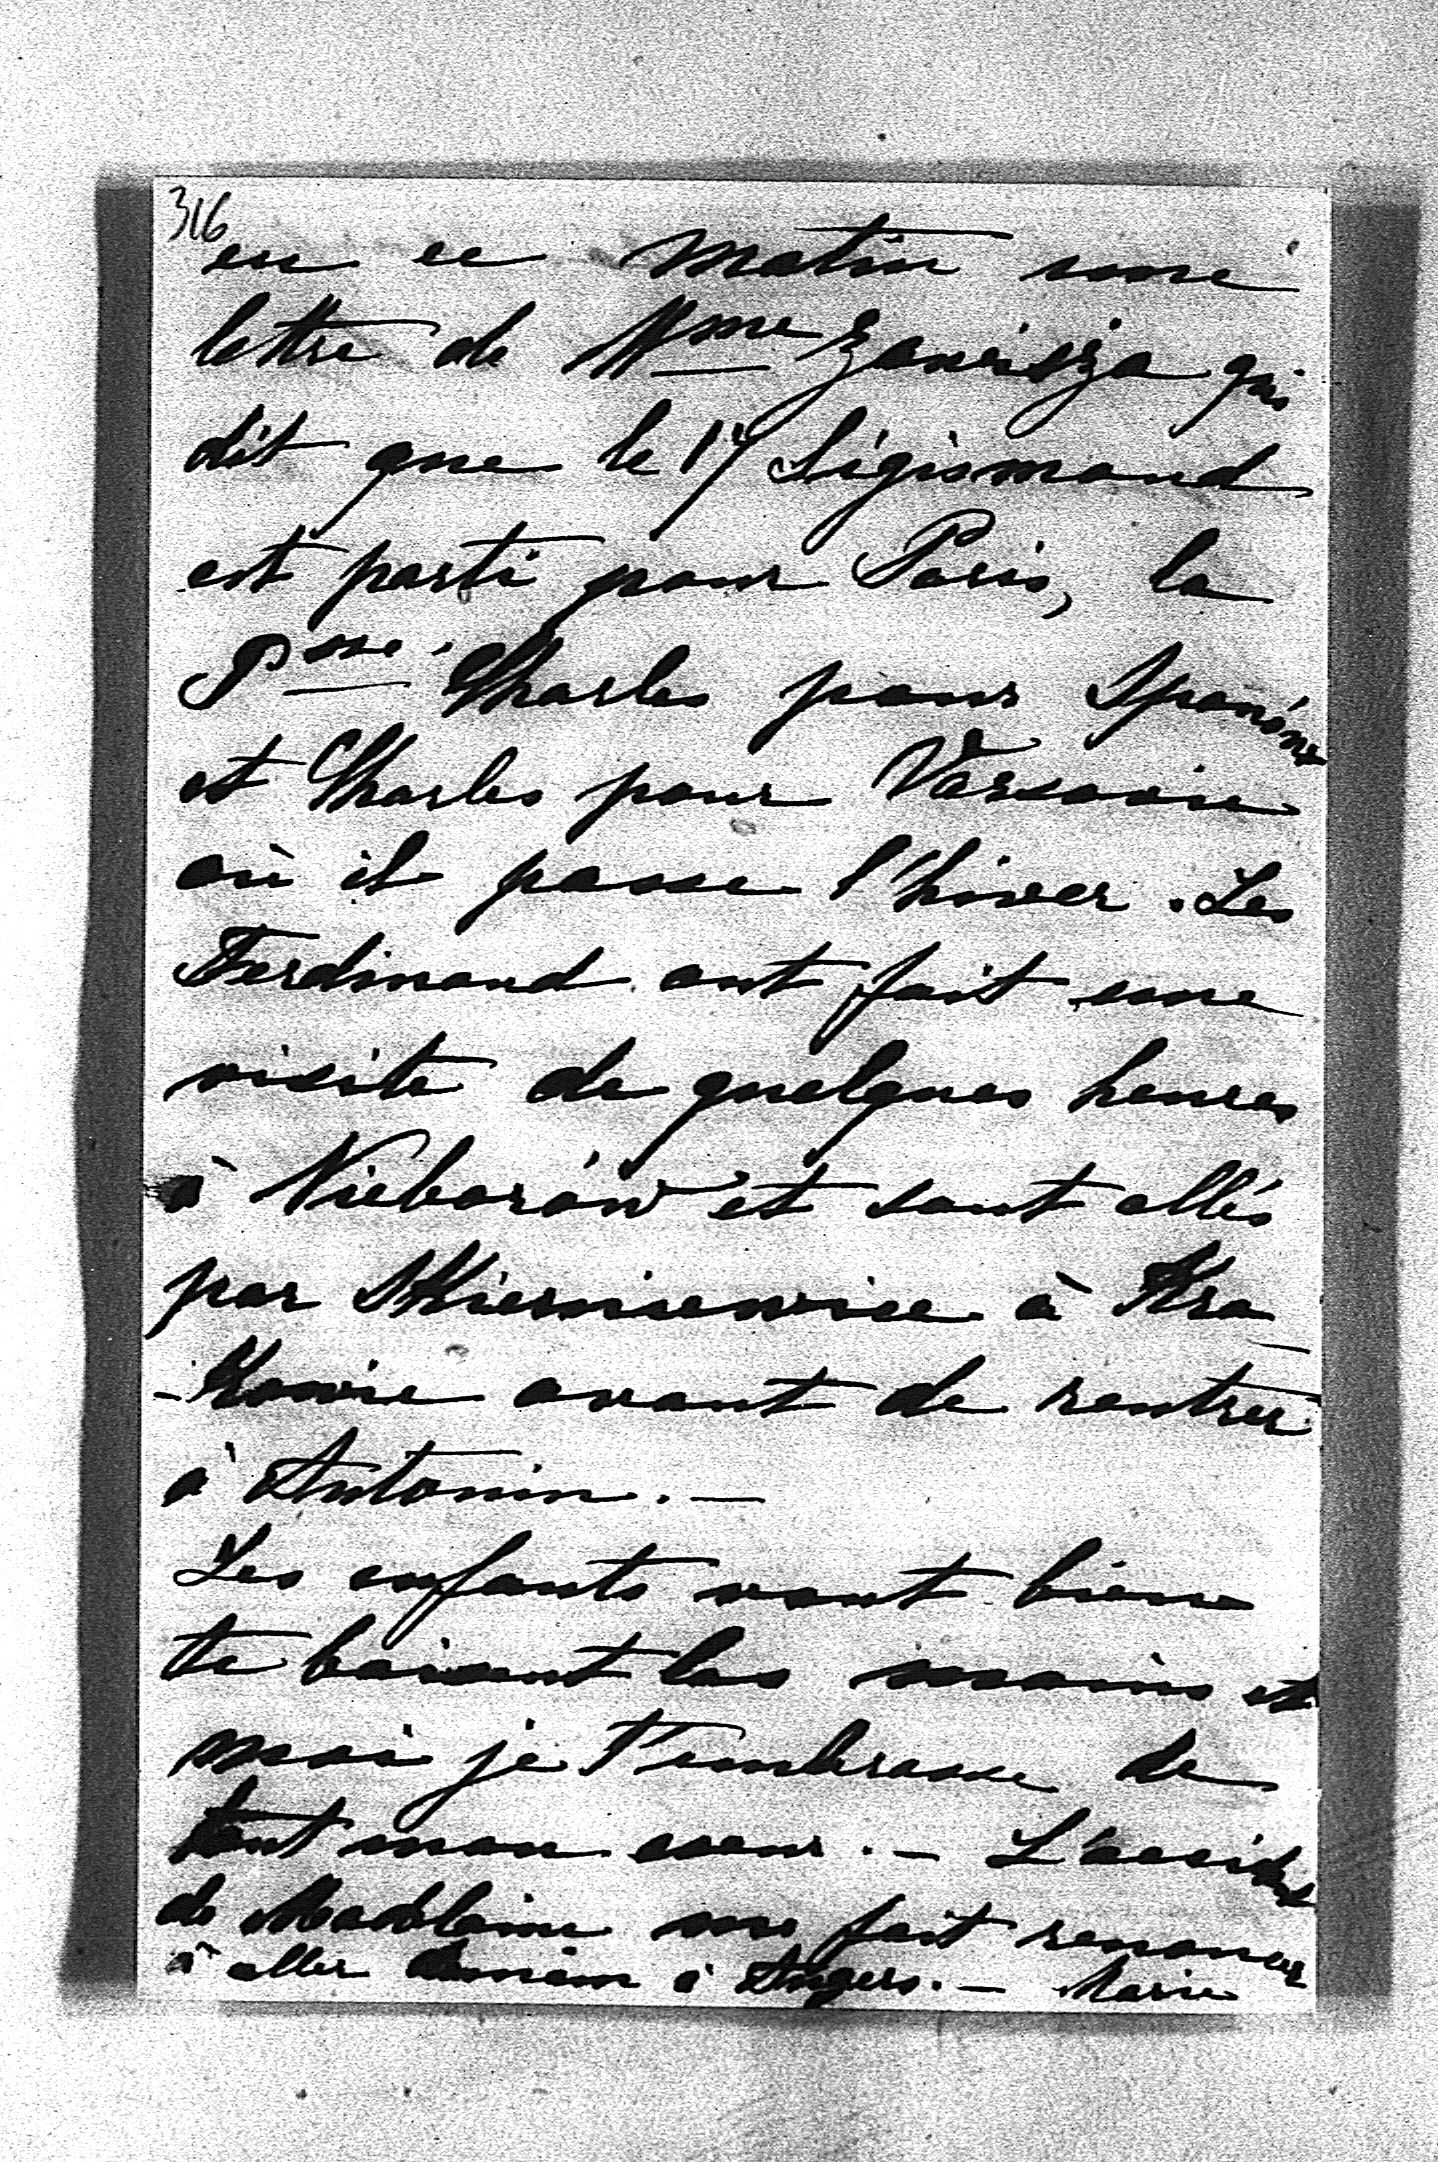 316
eu ce matin une
lettre de Mme Zawisza qui
dit que le 17 Sigismond
est parti pour Paris, la
Psse Charles pour Spanów
et Charles pour Varsovie
où il passe l'hiver. Les
Ferdinand ont fait une
visite de quelques heures
à Nieborów et sont allés
par Skierniewice à Kra
-kowie avant de rentrer
à Antonin. —
Les enfants vont bien
te baisent les mains et
moi je t'embrasse de
tout mon cœur. — L'accident
de Madeleine me fait renoncer
à aller demain à Angers. — Marie